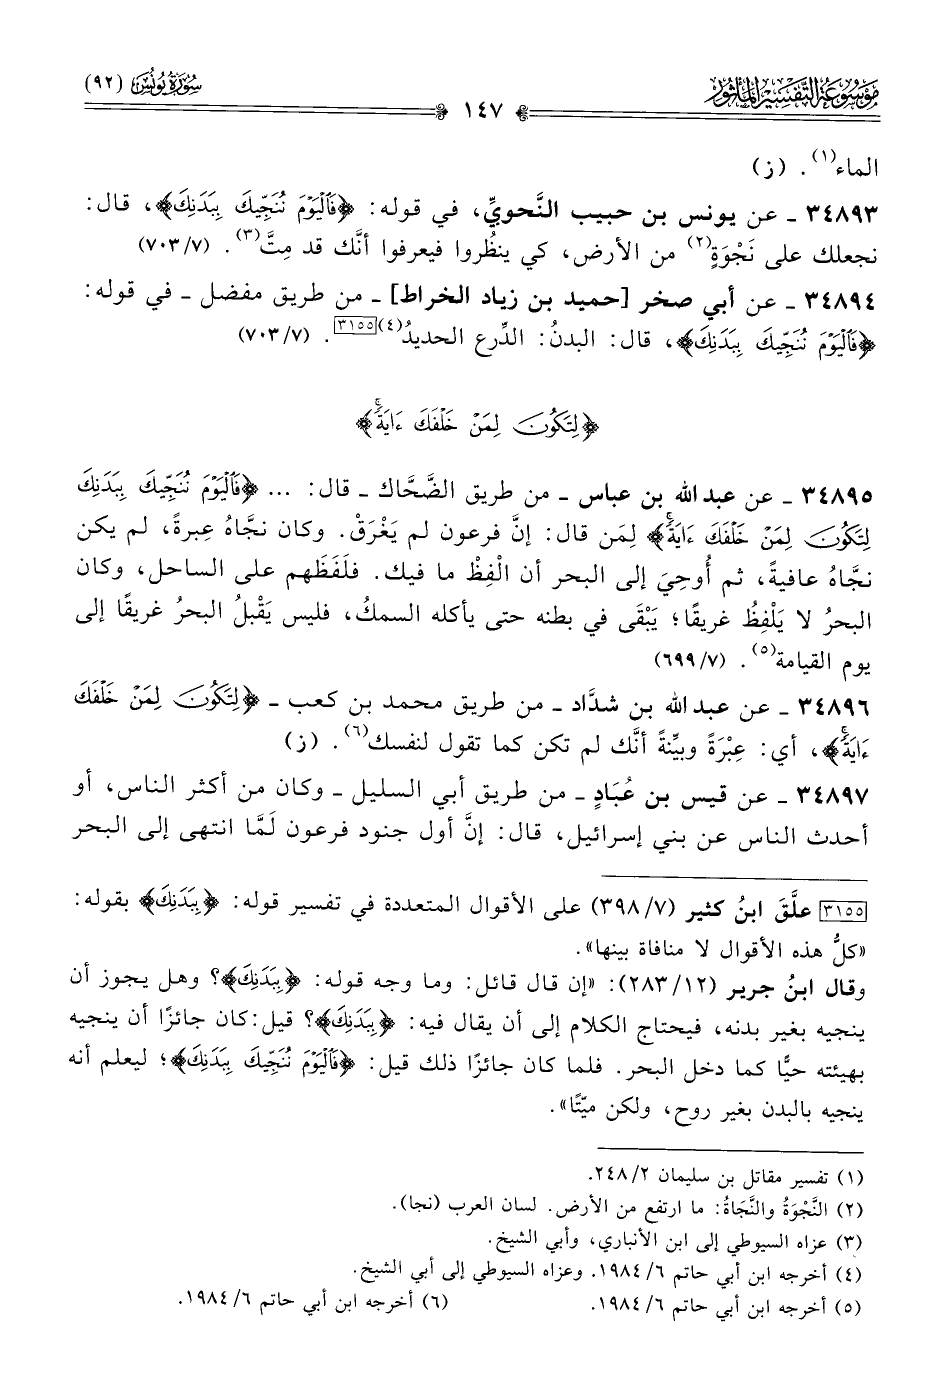 موسوعة التفسير المأثور
سورة يونس (٩٢)
١٤٧
الماء(١). (ز)
٣٤٨٩٣ ـ عن يونس بن حبيب النَّحويِّ، في قوله: ﴿فَٱلْيَوْمَ نُنَجِّيكَ بِبَدَنِكَ﴾، قال:
نجعلك على نَجْوَةٍ(٢) من الأرض، كي ينظُروا فيعرفوا أنَّك قد مِتَّ(٣). (٧/ ٧٠٣)
٣٤٨٩٤ ـ عن أبي صخر [حميد بن زياد الخراط] ـ من طريق مفضل ـ في قوله:
﴿فَٱلْيَوْمَ نُنَجِّيكَ بِبَدَنِكَ﴾، قال: البدنُ: الدِّرع الحديدُ(٤)[٣١٥٥]. (٧/ ٧٠٣)
﴿لِتَكُونَ لِمَنْ خَلْفَكَ ءَايَةًۚ﴾
٣٤٨٩٥ ـ عن عبد الله بن عباس ـ من طريق الضَّحَّاك ـ قال: ... ﴿فَٱلْيَوْمَ نُنَجِّيكَ بِبَدَنِكَ
لِتَكُونَ لِمَنْ خَلْفَكَ ءَايَةًۚ﴾ لِمَن قال: إنَّ فرعون لم يَغْرَقْ. وكان نجَّاهُ عِبرةً، لم يكن
نجَّاهُ عافيةً، ثم أُوحِيَ إلى البحر أن الْفِظْ ما فيك. فلَفَظَهم على الساحل، وكان
البحرُ لا يَلْفِظُ غريقًا؛ يَبْقَى في بطنه حتى يأكله السمكُ، فليس يَقْبلُ البحرُ غريقًا إلى
يوم القيامة(٥). (٧/ ٦٩٩)
٣٤٨٩٦ ـ عن عبد الله بن شدَّاد ـ من طريق محمد بن كعب ـ ﴿لِتَكُونَ لِمَنْ خَلْفَكَ
ءَايَةًۚ﴾، أي: عِبْرَةً وبيِّنةً أنَّك لم تكن كما تقول لنفسك(٦). (ز)
٣٤٨٩٧ ـ عن قيس بن عُبَادٍ ـ من طريق أبي السليل ـ وكان من أكثر الناس، أو
أحدث الناس عن بني إسرائيل، قال: إنَّ أول جنود فرعون لَمَّا انتهى إلى البحر
[٣١٥٥] علَّقَ ابنُ كثير (٧/ ٣٩٨) على الأقوال المتعددة في تفسير قوله: ﴿بِبَدَنِكَ﴾ بقوله:
«كلُّ هذه الأقوال لا منافاة بينها».
وقال ابنُ جرير (١٢/ ٢٨٣): «إن قال قائل: وما وجه قوله: ﴿بِبَدَنِكَ﴾؟ وهل يجوز أن
ينجيه بغير بدنه، فيحتاج الكلام إلى أن يقال فيه: ﴿بِبَدَنِكَ﴾؟ قيل: كان جائزًا أن ينجيه
بهيئته حيًّا كما دخل البحر. فلما كان جائزًا ذلك قيل: ﴿فَٱلْيَوْمَ نُنَجِّيكَ بِبَدَنِكَ﴾؛ ليعلم أنه
ينجيه بالبدن بغير روح، ولكن ميّتًا».
(١) تفسير مقاتل بن سليمان ٢/ ٢٤٨.
(٢) النَّجْوَةُ والنَّجَاةُ: ما ارتفع من الأرض. لسان العرب (نجا).
(٣) عزاه السيوطي إلى ابن الأنباري، وأبي الشيخ.
(٤) أخرجه ابن أبي حاتم ٦/ ١٩٨٤. وعزاه السيوطي إلى أبي الشيخ.
(٥) أخرجه ابن أبي حاتم ٦/ ١٩٨٤.
(٦) أخرجه ابن أبي حاتم ٦/ ١٩٨٤.